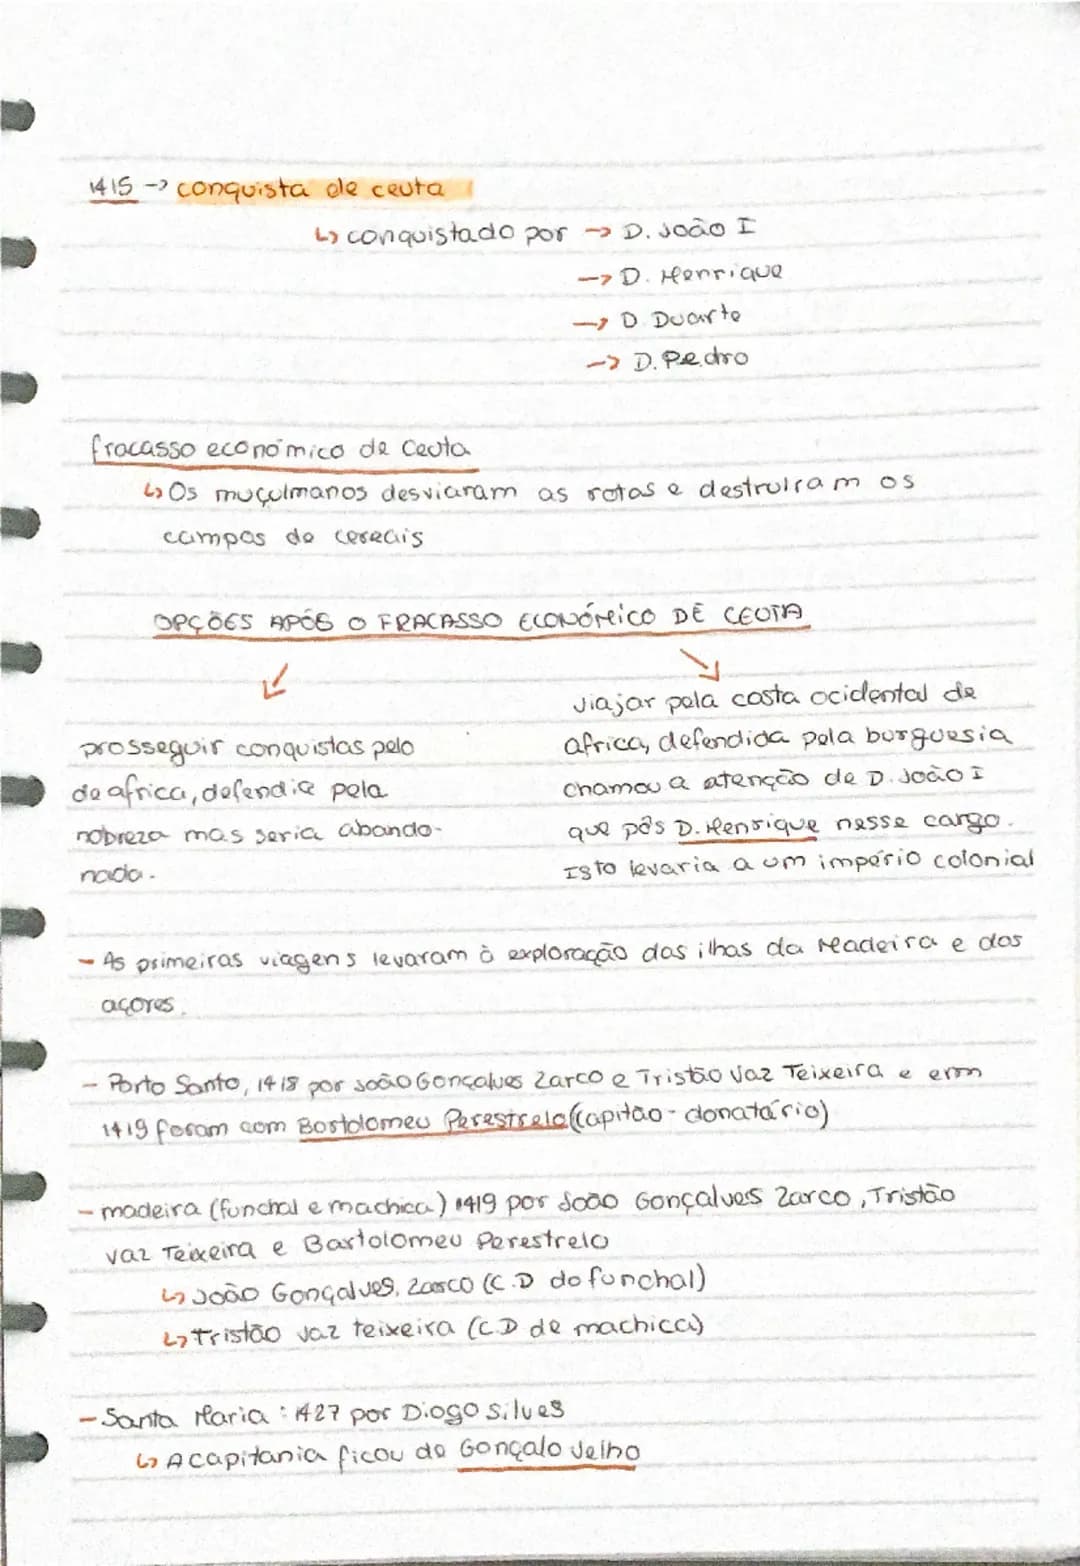 1415 -> conquista de ceuta
↳ conquistado por -> D. João I
-> D. Henrique
-> D. Duarte
-> D. Pedro
fracasso económico de Ceuta
↳ Os muçulmanos desviaram as rotas e destruíram os
campos de cereais
OPÇÕES APÓS O FRACASSO ECONÓMICO DE CEUTA
prosseguir conquistas pelo
de africa, defendia pela
nobreza mas seria abando-
nada.
viajar pela costa ocidental de
africa, defendida pela burguesia
chamou a atenção de D. João I
que pôs D. Henrique nesse cargo.
Isto levaria a um império colonial
- As primeiras viagens levaram à exploração das ilhas da Madeira e dos
açores.
- Porto Santo, 1418 por João Gonçalves Zarco e Tristão Vaz Teixeira e em
1419 foram com Bartolomeu Perestrelo (capitão-donatário)
- madeira (funchal e machica) 1419 por João Gonçalves Zarco, Tristão
vaz Teixeira e Bartolomeu Perestrelo
↳ João Gonçalves. Zarco (C.D do funchal)
↳ Tristão vaz teixeira (C.D de machica)
- Santa Maria : 1427 por Diogo silves
↳ A capitania ficou do Gonçalo Velho